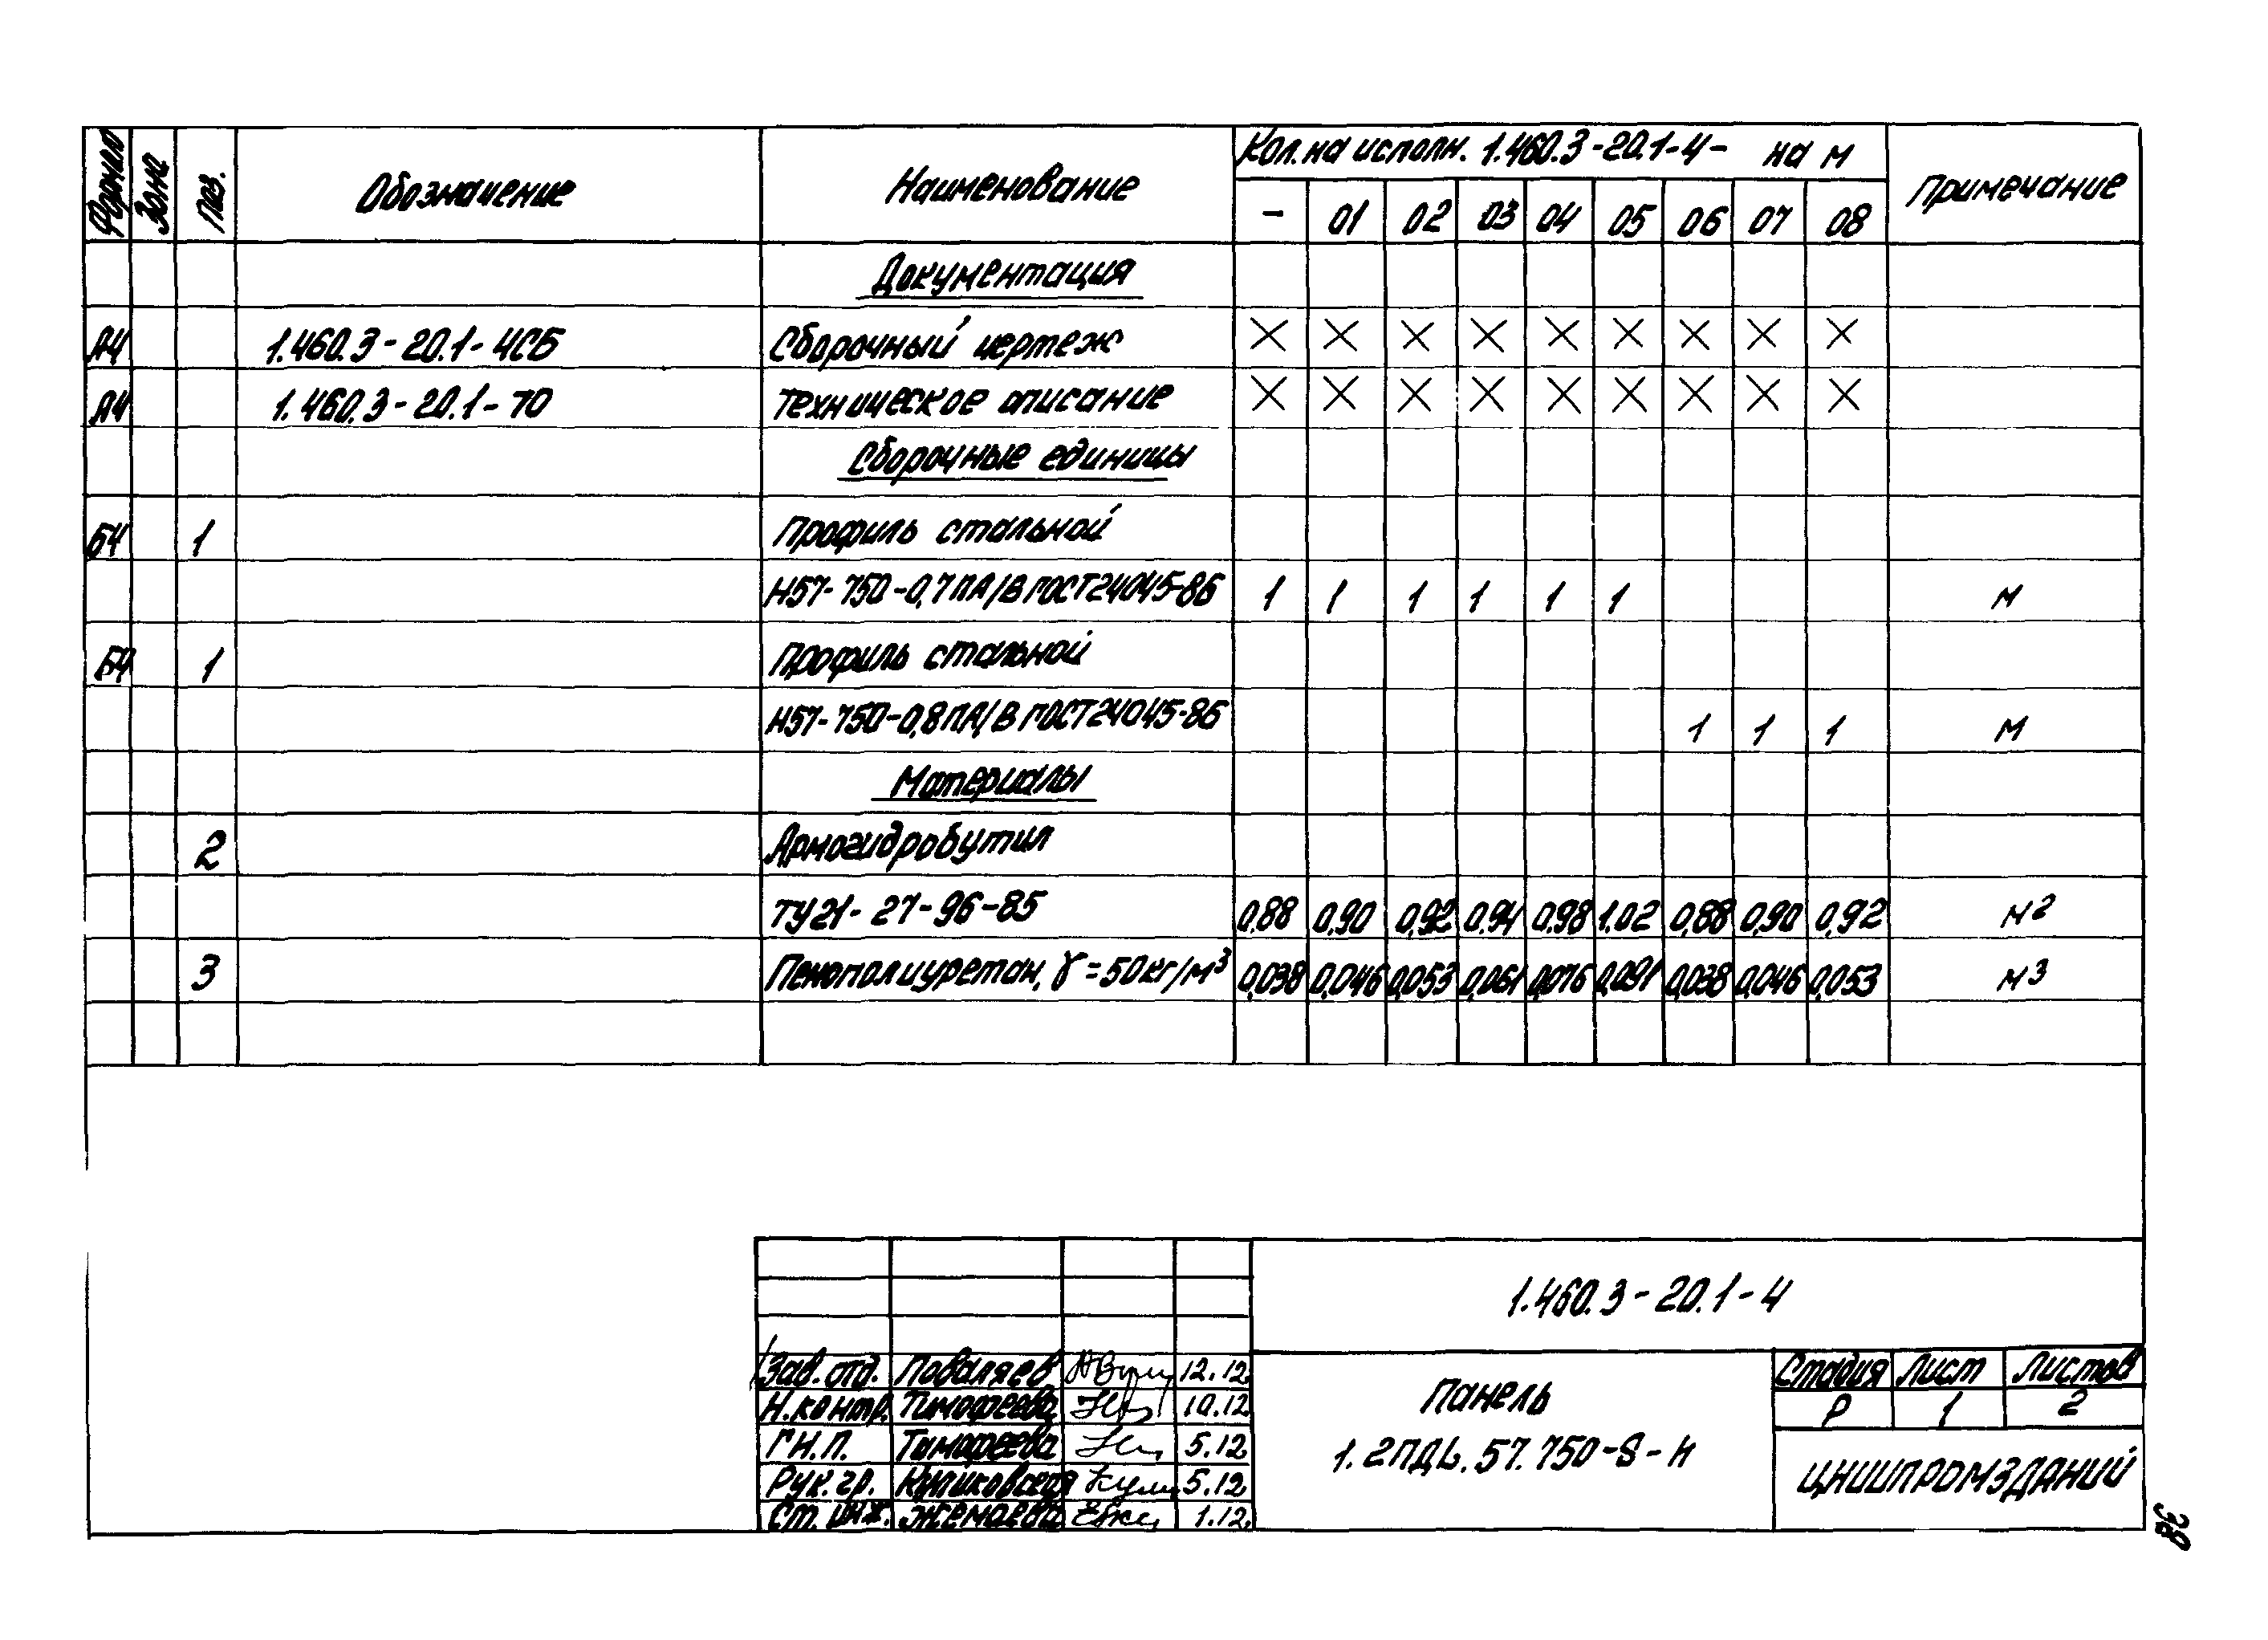 Формат Зона Поз. Обозначение Наименование Кол. на исполн. 1.460.3-20.1-4- на м Примечание
- 01 02 03 04 05 06 07 08
Документация
А4 1.460.3-20.1-4СБ Сборочный чертеж X X X X X X X X X
А4 1.460.3-20.1-ТО Техническое описание X X X X X X X X X
Сборочные единицы
Б4 1 Профиль стальной
Н57-750-0,7ПА/В ГОСТ24045-86 1 1 1 1 1 1 м
Б4 1 Профиль стальной
Н57-750-0,8ПА/В ГОСТ24045-86 1 1 1 м
Материалы
2 Армогидробутил
ТУ21-27-96-85 0,88 0,90 0,92 0,94 0,98 1.02 0,88 0,90 0,92 м²
3 Пенополиуретан, γ=50кг/м³ 0,038 0,046 0,053 0,061 0,076 0,091 0,038 0,046 0,053 м³
1.460.3-20.1-4
Зав. отд. Поваляев 12.12
Н.контр. Тимофеева 10.12
Г.И.П. Тимофеева 5.12
Рук. гр. 5.12
Ст. инж. 1.12.
Панель
1.2ПДL.57.750-S-Н
Стадия Лист Листов
Р 1 2
ЦНИИПРОМЗДАНИЙ
38